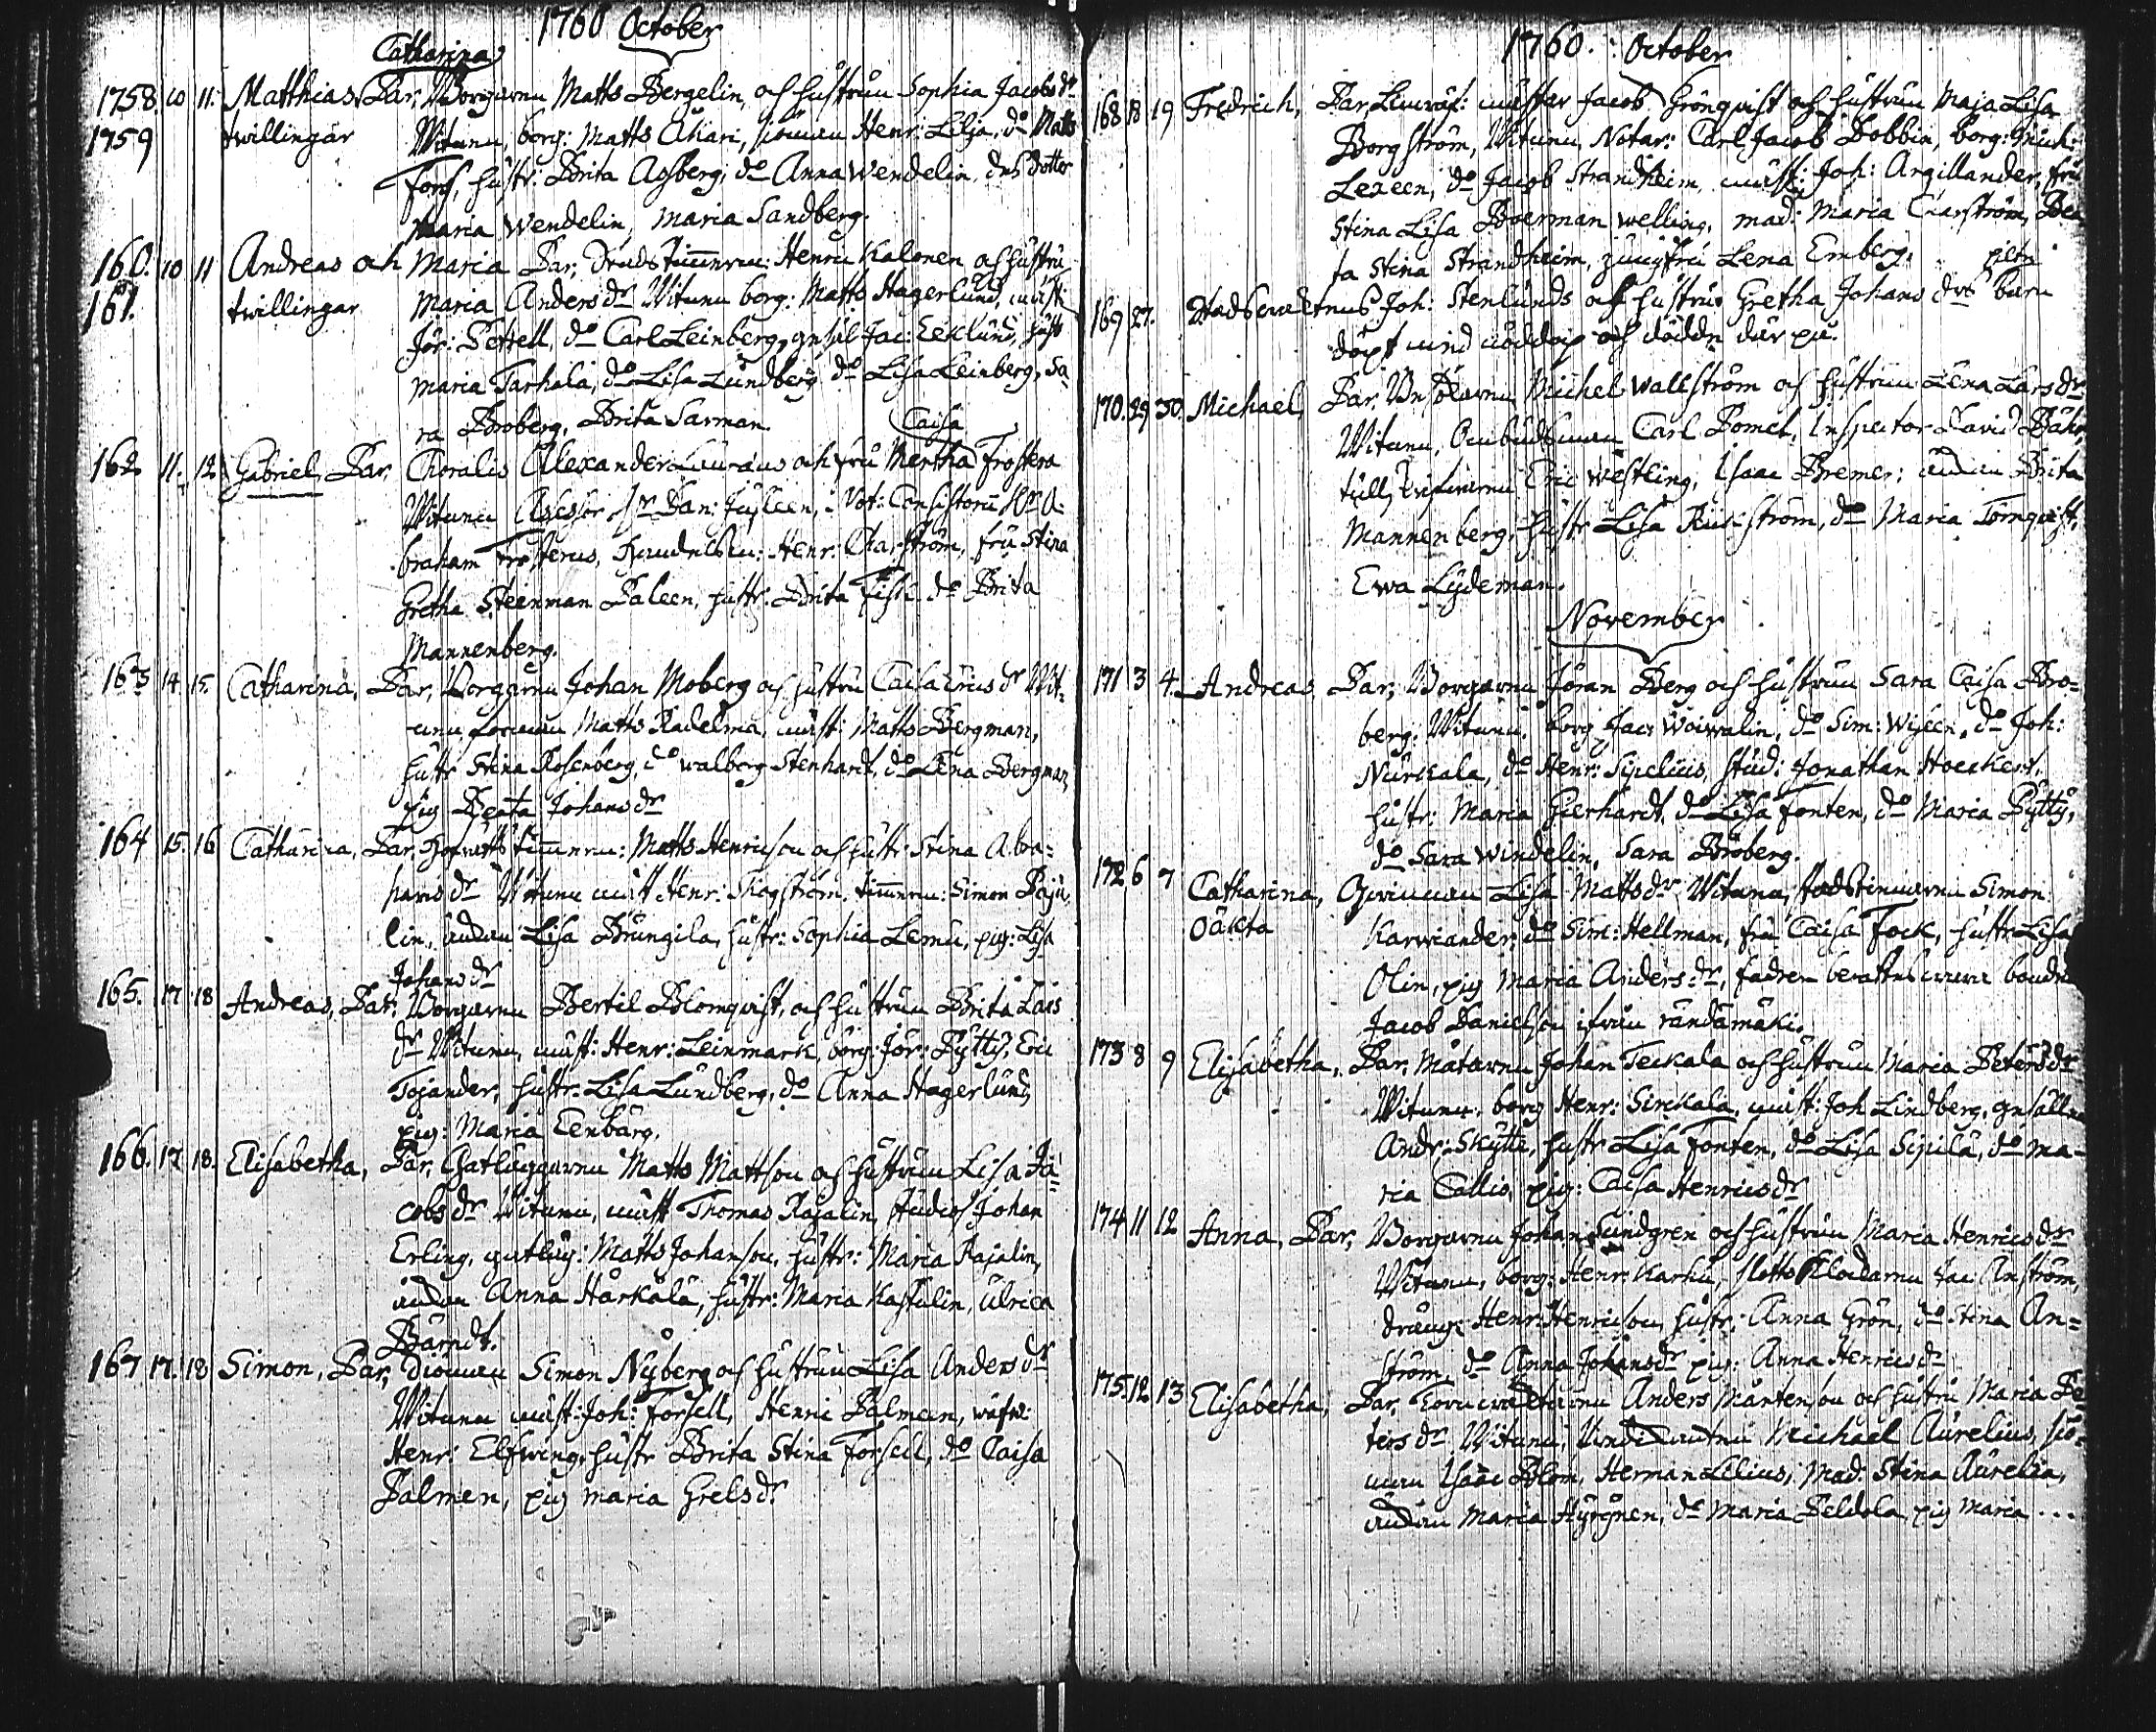 1760 October
Catharina
1758. 10 11. Matthias. Par, Borgaren Matts Bergelin, och hustrun Sophia Jacobs dr
1759 twillingar Witnen, borg: Matts Ahari, sioman Henr: Lilja, do Matts
Fors, hustr: Brita Agberg, do Anna Wendelin, des dotter
Maria Wendelin, Maria Sandberg.
160. 10 11 Andreas och Maria Par, Henric Kalonen och hustru
161. twillingar Maria Anders dr Witnen borg: Matts Hagerlund, mäst:
Jör: Settell, do Carl Leinberg, gesäl Jac: Eeklund, hust
Maria Tarhala, do Lisa Lundberg do Lisa Leinberg, Sa-
ra Broberg, Brita Sarman
Caisa
162 11. 12 Gabriel, Par, Choralis Alexander Lauraus och fru Mertha Frostera
Witnen Assessor Hr Dan: Jusleen, Not: Consistorii Hr A-
braham Frosterus, Handelsm: Henr: Charström, fru Stina
Gretha Steenman Paleen, hustr. Brita Fisk do Brita
Mannenberg.
163 14. 15. Catharina, Par, Borgaren Johan Moberg och hustru Caisa Erics dr Wit-
nen Forman Matts Radelma, mäst: Matts Bergman,
hustr Stina Rosenberg, do Walborg Stenhardt, do Lena Bergman,
pig Beata Johans dr
164 15. 16 Catharina, Par, Hofrätts timmerm: Matts Henricson och hustr: Stina Abra-
hams dr Witnen mäst Henr: Skogström, timmerm: Simon Paju-
lin, änkan Lisa Brungila, hustr: Sophia Lemu, pig: Lisa
Johans dr
165. 17 18 Andreas, Par: Borgaren Bertil Blomqvist, och hustrun Brita Lars
dr Witnen, mäst: Henr: Leinmark, borg: Jör: Pytty, Eric
Tojander, hustr. Lisa Lundberg, do Anna Hagerlund,
pig: Maria Eenbärg.
166. 17 18. Elisabetha, Par, Gatläggaren Matts Mattson och hustrun Lisa Ja-
cobs dr Witnen, mäst Thomas Rajalin, Studios Johan
Erling, gatläg: Matts Johanson, hustr: Maria Rajalin,
änkan Anna Härkälä, hustr: Maria Kassulin, Ulrica
Bärndt.
167 17. 18 Simon, Par, Siöman Simon Nyberg och hustrun Lisa Anders dr
Witnen mäst: Joh: Forsell, Henric Palmen, wäfw:
Henr: Elfwing, hustr Brita Stina Forsell, do Caisa
Palmen, pig Maria Grels dr
1760. October
168 18 19 Fredrich, Par, mästar Jacob Grönqvist och hustrun Maja Lisa
Borgström, Witnen, Notar: Carl Jacob Bobbin, borg:
Lexeen, do Jacob Strandheim, mäst: Joh: Argillander, fru
Stina Lisa Boerman Welling, mad: Maria Charström, Bea-
ta Stina Strandheim, jungfru Lena Emberg.
169 27. Stadswacktens Joh: Stenlunds och hustrus Gretha Johans drs barn
döpt med nöddop och dödde där på.
170. 29 30. Michael, Par, Michel Wallström och hustrun Lena Lars dr
Witnen, Ombudsman Carl Pomel, Inspector David Pähr,
tull Eric Westling, Isaac Bremer, änkan Brita
Mannenberg, hustr Lisa Riisström, do Maria Törnqvist,
Ewa Lydeman.
November
171 3 4. Andreas Par, Borgaren Jöran Berg och hustrun Sara Caisa Bro-
berg. Witnen, borg Jac: Woiwalin, do Sim: Wijeen, do Joh:
Nurkala, do Henr: Sipelius, Stud: Jonathan Hoeckert,
hustr: Maria Gerhardt, do Lisa Fonten, do Maria Pytty,
do Sara Windelin, Sara Broberg.
172 6 7 Catharina, Qwinnan Lisa Matts dr Witnen, Simon
Oäkta Karwiander, do Sim: Hellman, fru Caisa Fock, hustr Lisa
Olin, pig Maria Anders: dr, fadren berättas wara bonden
Jacob Danielson ifrån Rändämäki.
173 8 9 Elisabetha, Par, Mätaren Johan Teckala och hustrun Maria Peters dr
Witnen, borg Henr: Sirckala, mäst: Joh Lindberg, gesällen
Andr: Skytta, hustr Lisa Fonten, do Lisa Sipilä, do Ma-
ria Callis, pig: Caisa Henrics dr
174 11 12 Anna, Par, Borgaren Johan Sundgren och hustrun Maria Henrics dr
Witnen, borg: Henr. Karhu, Slotts Jac: Anström,
dräng: Henr: Henricson, hustr: Anna Grön, do Stina An-
ström, do Anna Johans dr pig: Anna Henrics dr
175 12 13 Elisabetha, Par, Anders Mårtenson och hustru Maria Pe-
ters dr Witnen, Michael Aurelius, siö-
man Isaac Blom, Herman Lilius, Mad: Stina Aurelia,
änkan Maria Hyrynen, do Maria Peldola, pig Maria ...